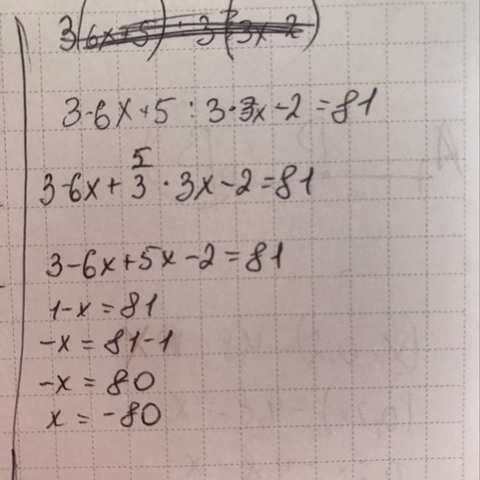 3(6x+5) : 3(3x-2)
3-6x+5 : 3·3x-2=81
3-6x+5/3·3x-2=81
3-6x+5x-2=81
1-x=81
-x=81-1
-x=80
x=-80